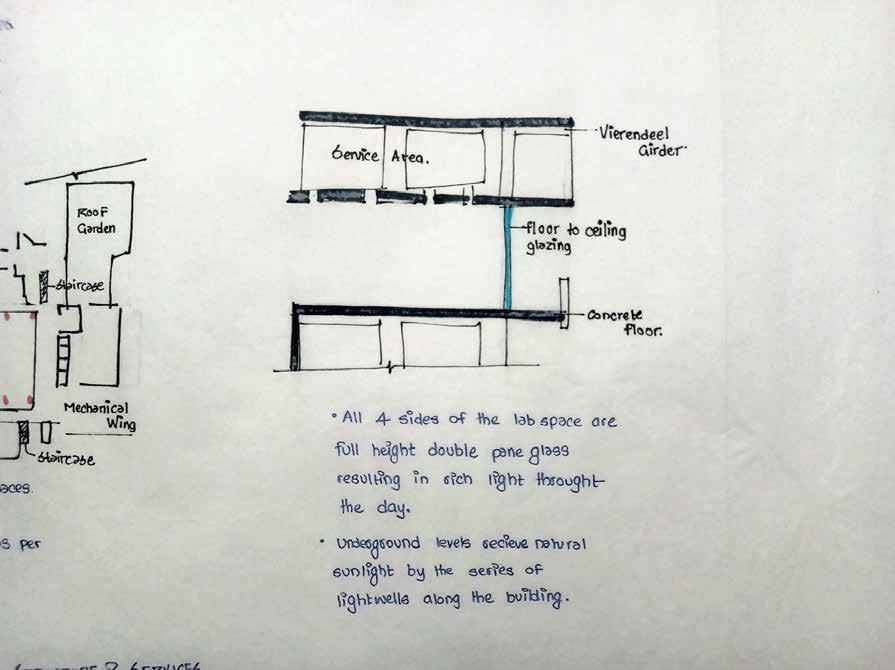 Roof
Garden
Staircase
Mechanical
Wing
Staircase
aces.
s per
Service Area.
Vierendeel
Girder.
floor to ceiling
glazing
Concrete
floor.
• All 4 sides of the lab space are
full height double pane glass
resulting in rich light throught
the day.
• Underground levels recieve natural
sunlight by the series of
lightwells along the building.
& SERVICES